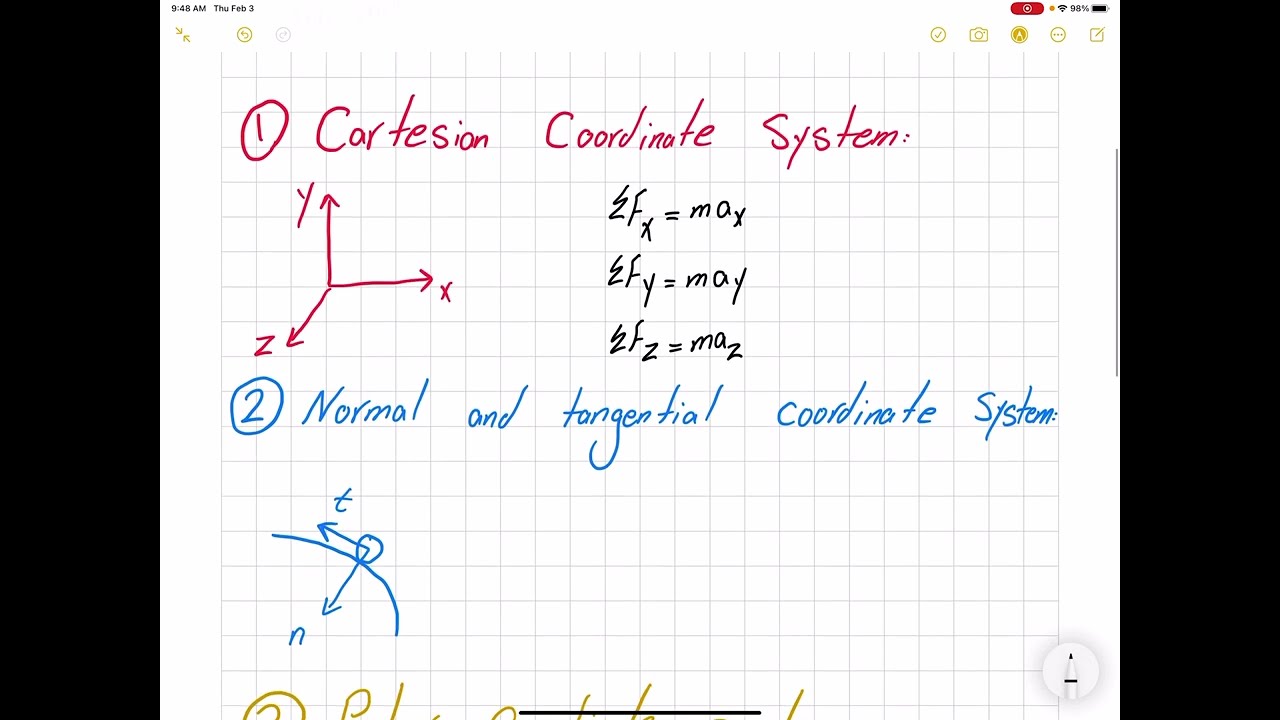 9:48 AM Thu Feb 3
98%
① Cartesian Coordinate System:
y
x
z
ΣFx = max
ΣFy = may
ΣFz = maz
② Normal and tangential coordinate System:
t
n